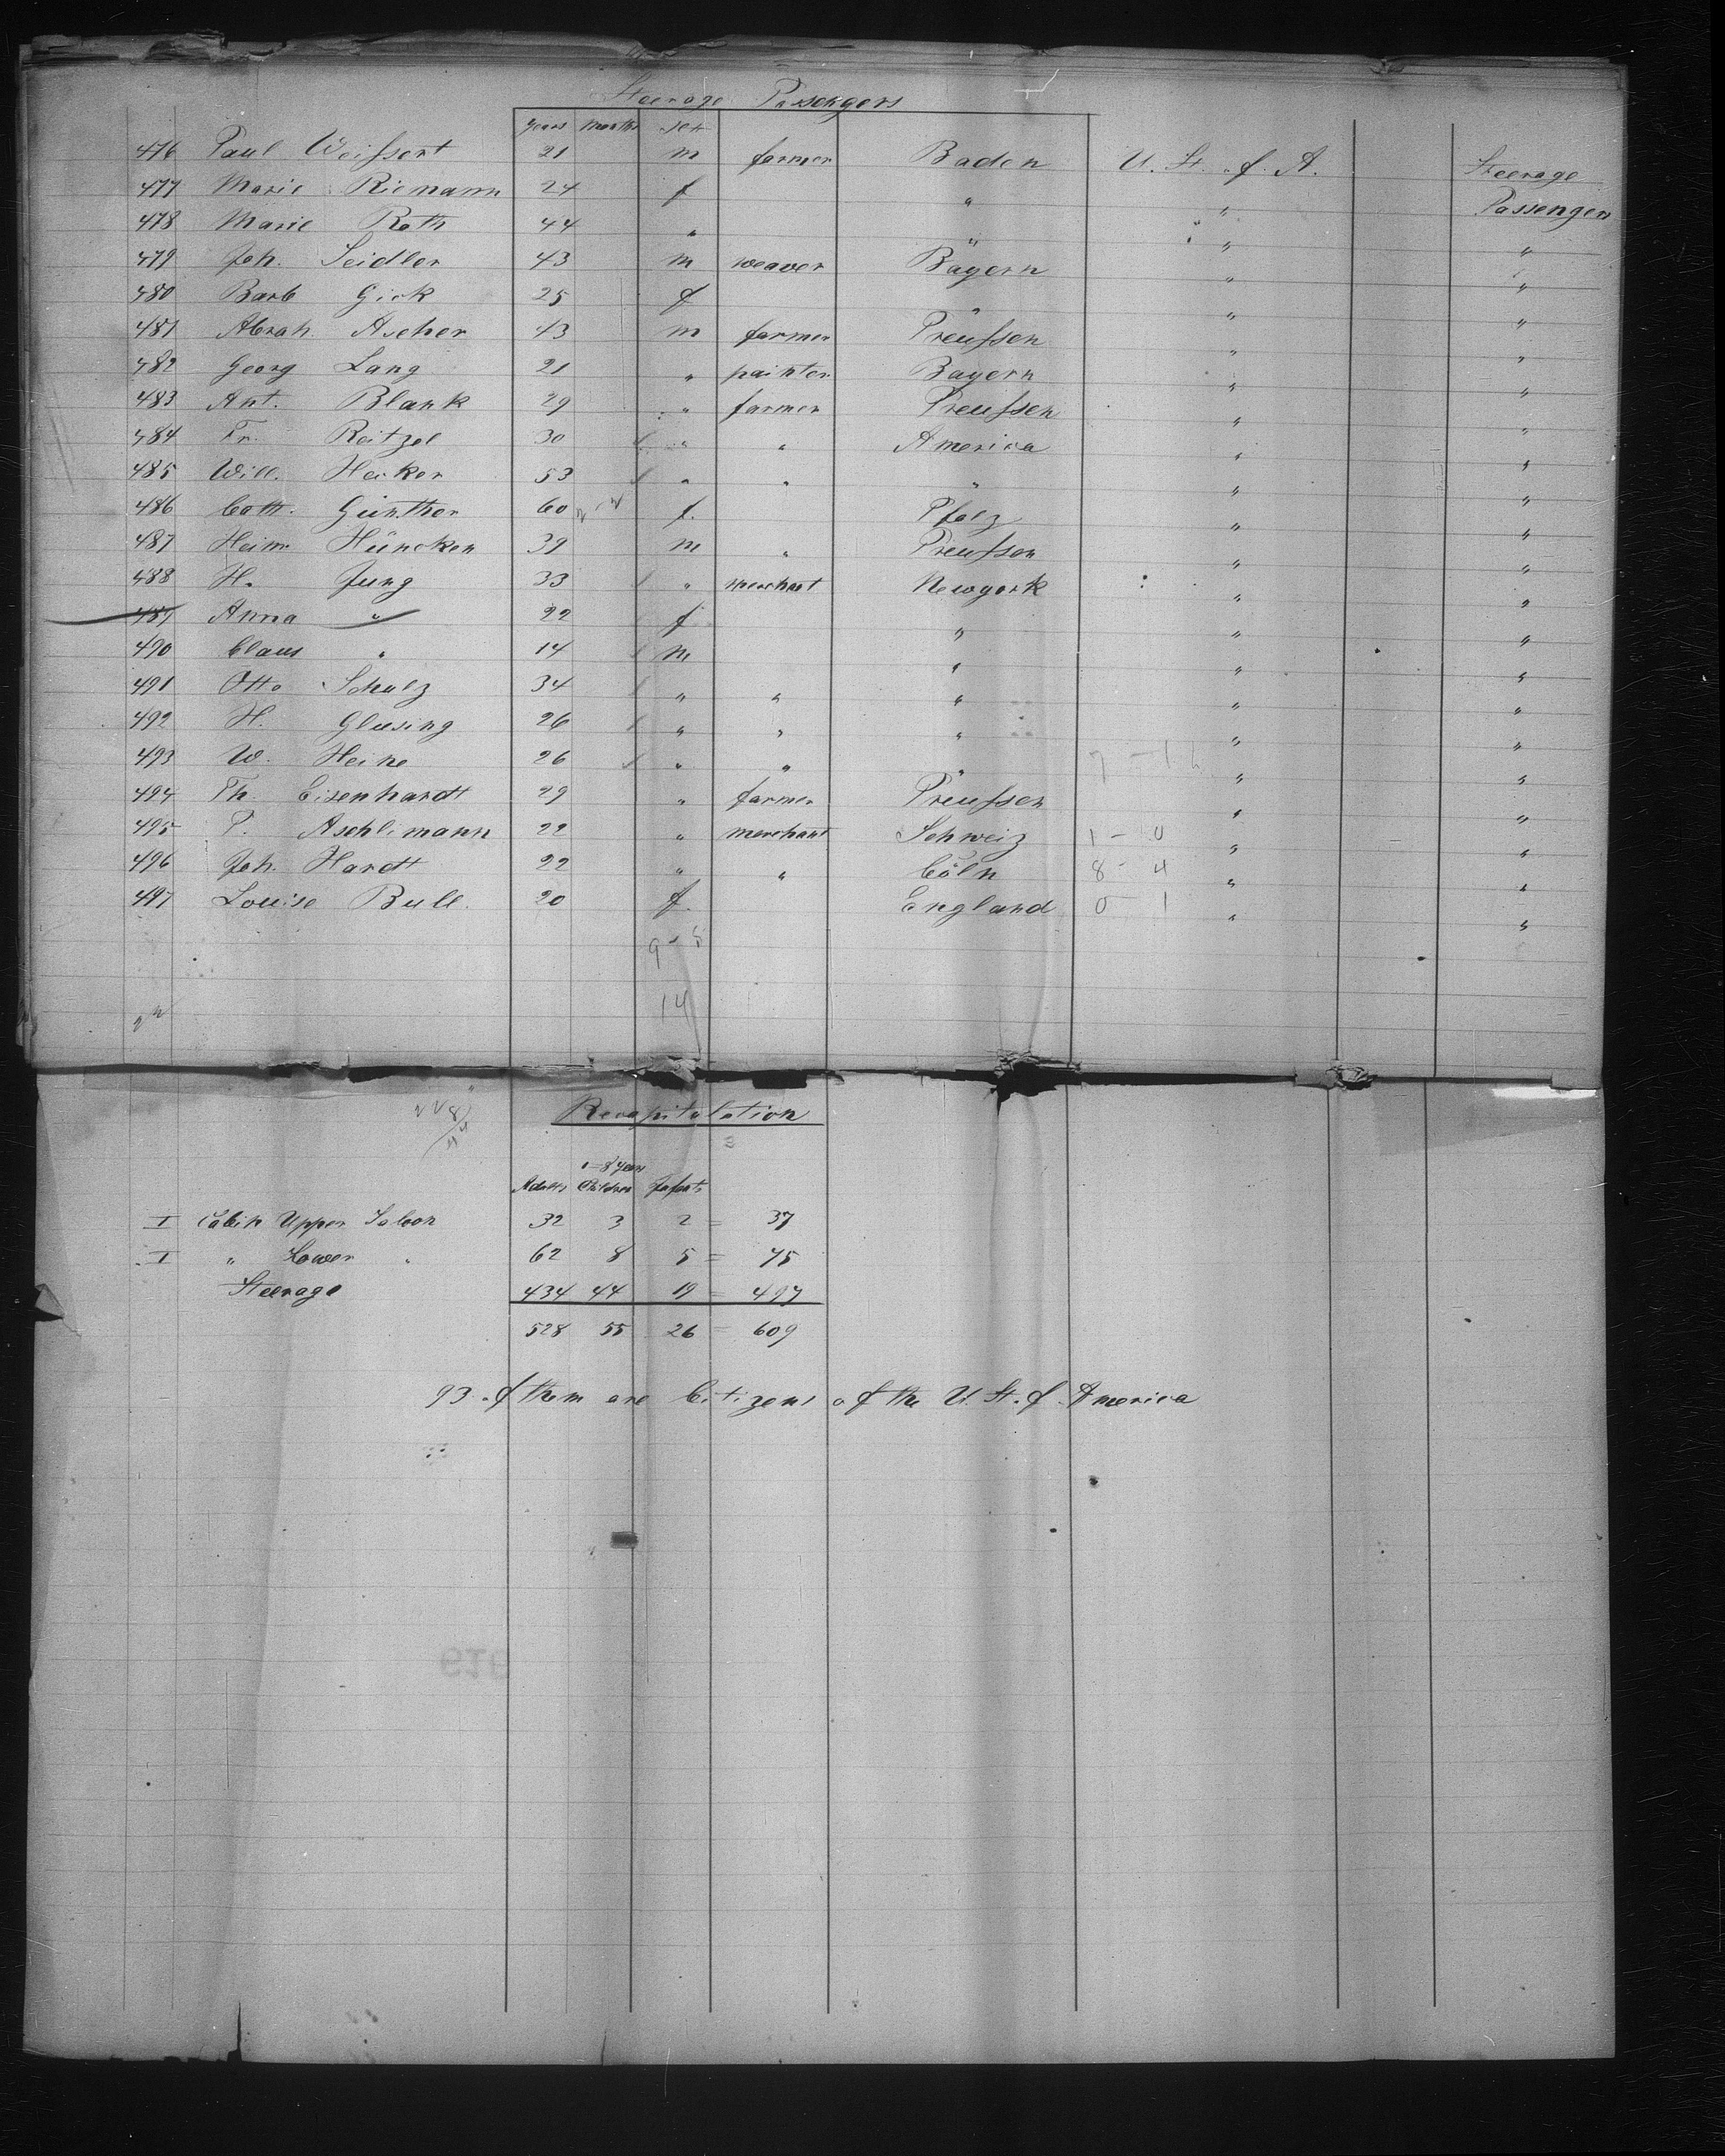 Steerage Passengers
Years Months sex
476 Paul Weifsert 21 m farmer Baden U. St. of A. Steerage
477 Marie Riemann 24 f " " Passengers
478 Marie Roth 44 " " " "
479 Joh. Seidler 43 m weaver Bayern " "
480 Barb Gick 25 f " " "
481 Abrah. Ascher 43 m farmer Preufsen " "
482 Georg Lang 21 " painter Bayern " "
483 Ant. Blank 29 " farmer Preufsen " "
484 Fr. Reitzel 30 " " America " "
485 Will. Heiker 53 " " " " "
486 Cath. Günther 60 f. Pfalz " "
487 Heinr. Hüncken 39 m " Preufsen " "
488 H. Jung 33 " merchant Newyork " "
489 Anna " 22 f " " "
490 Claus " 14 m " " "
491 Otto Schulz 34 " " " " "
492 H. Glusing 26 " " " " "
493 W. Heine 26 " " " " "
494 Th. Eisenhardt 29 " farmer Preufsen " "
495 P. Aschlimann 22 " merchant Schweiz 1 - 0 " "
496 Joh. Hardt 22 " " Cöln 8 - 4 " "
497 Louise Bull 20 f. England 0 1 " "
9 - 5
14
Recapitulation
1-8 Years
Adults Children Infants
I Cabin Upper Saloon 32 3 2 = 37
I " Lower " 62 8 5 = 75
Steerage 434 44 19 = 497
528 55 26 = 609
93 of them are Citizens of the U. St. of America